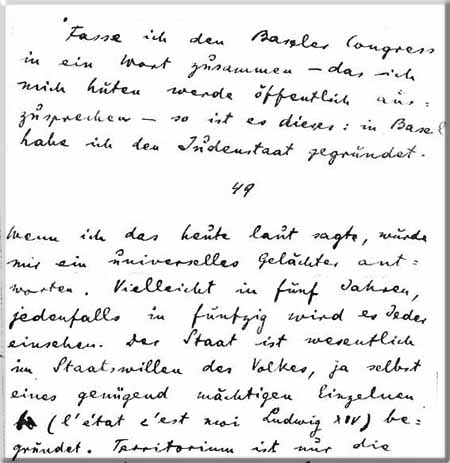 Fasse ich den Baseler Congress
in ein Wort zusammen – das ich
mich hüten werde öffentlich aus=
zusprechen – so ist es dieses: in Basel
habe ich den Judenstaat gegründet.
49
Wenn ich das heute laut sagte, würde
mir ein universelles Gelächter ant=
worten. Vielleicht in fünf Jahren,
jedenfalls in fünfzig wird es Jeder
einsehen. Der Staat ist wesentlich
im Staatswillen des Volkes, ja selbst
eines genügend mächtigen Einzelnen
(l'état c'est moi Ludwig XIV) be=
gründet. Territorium ist nur die